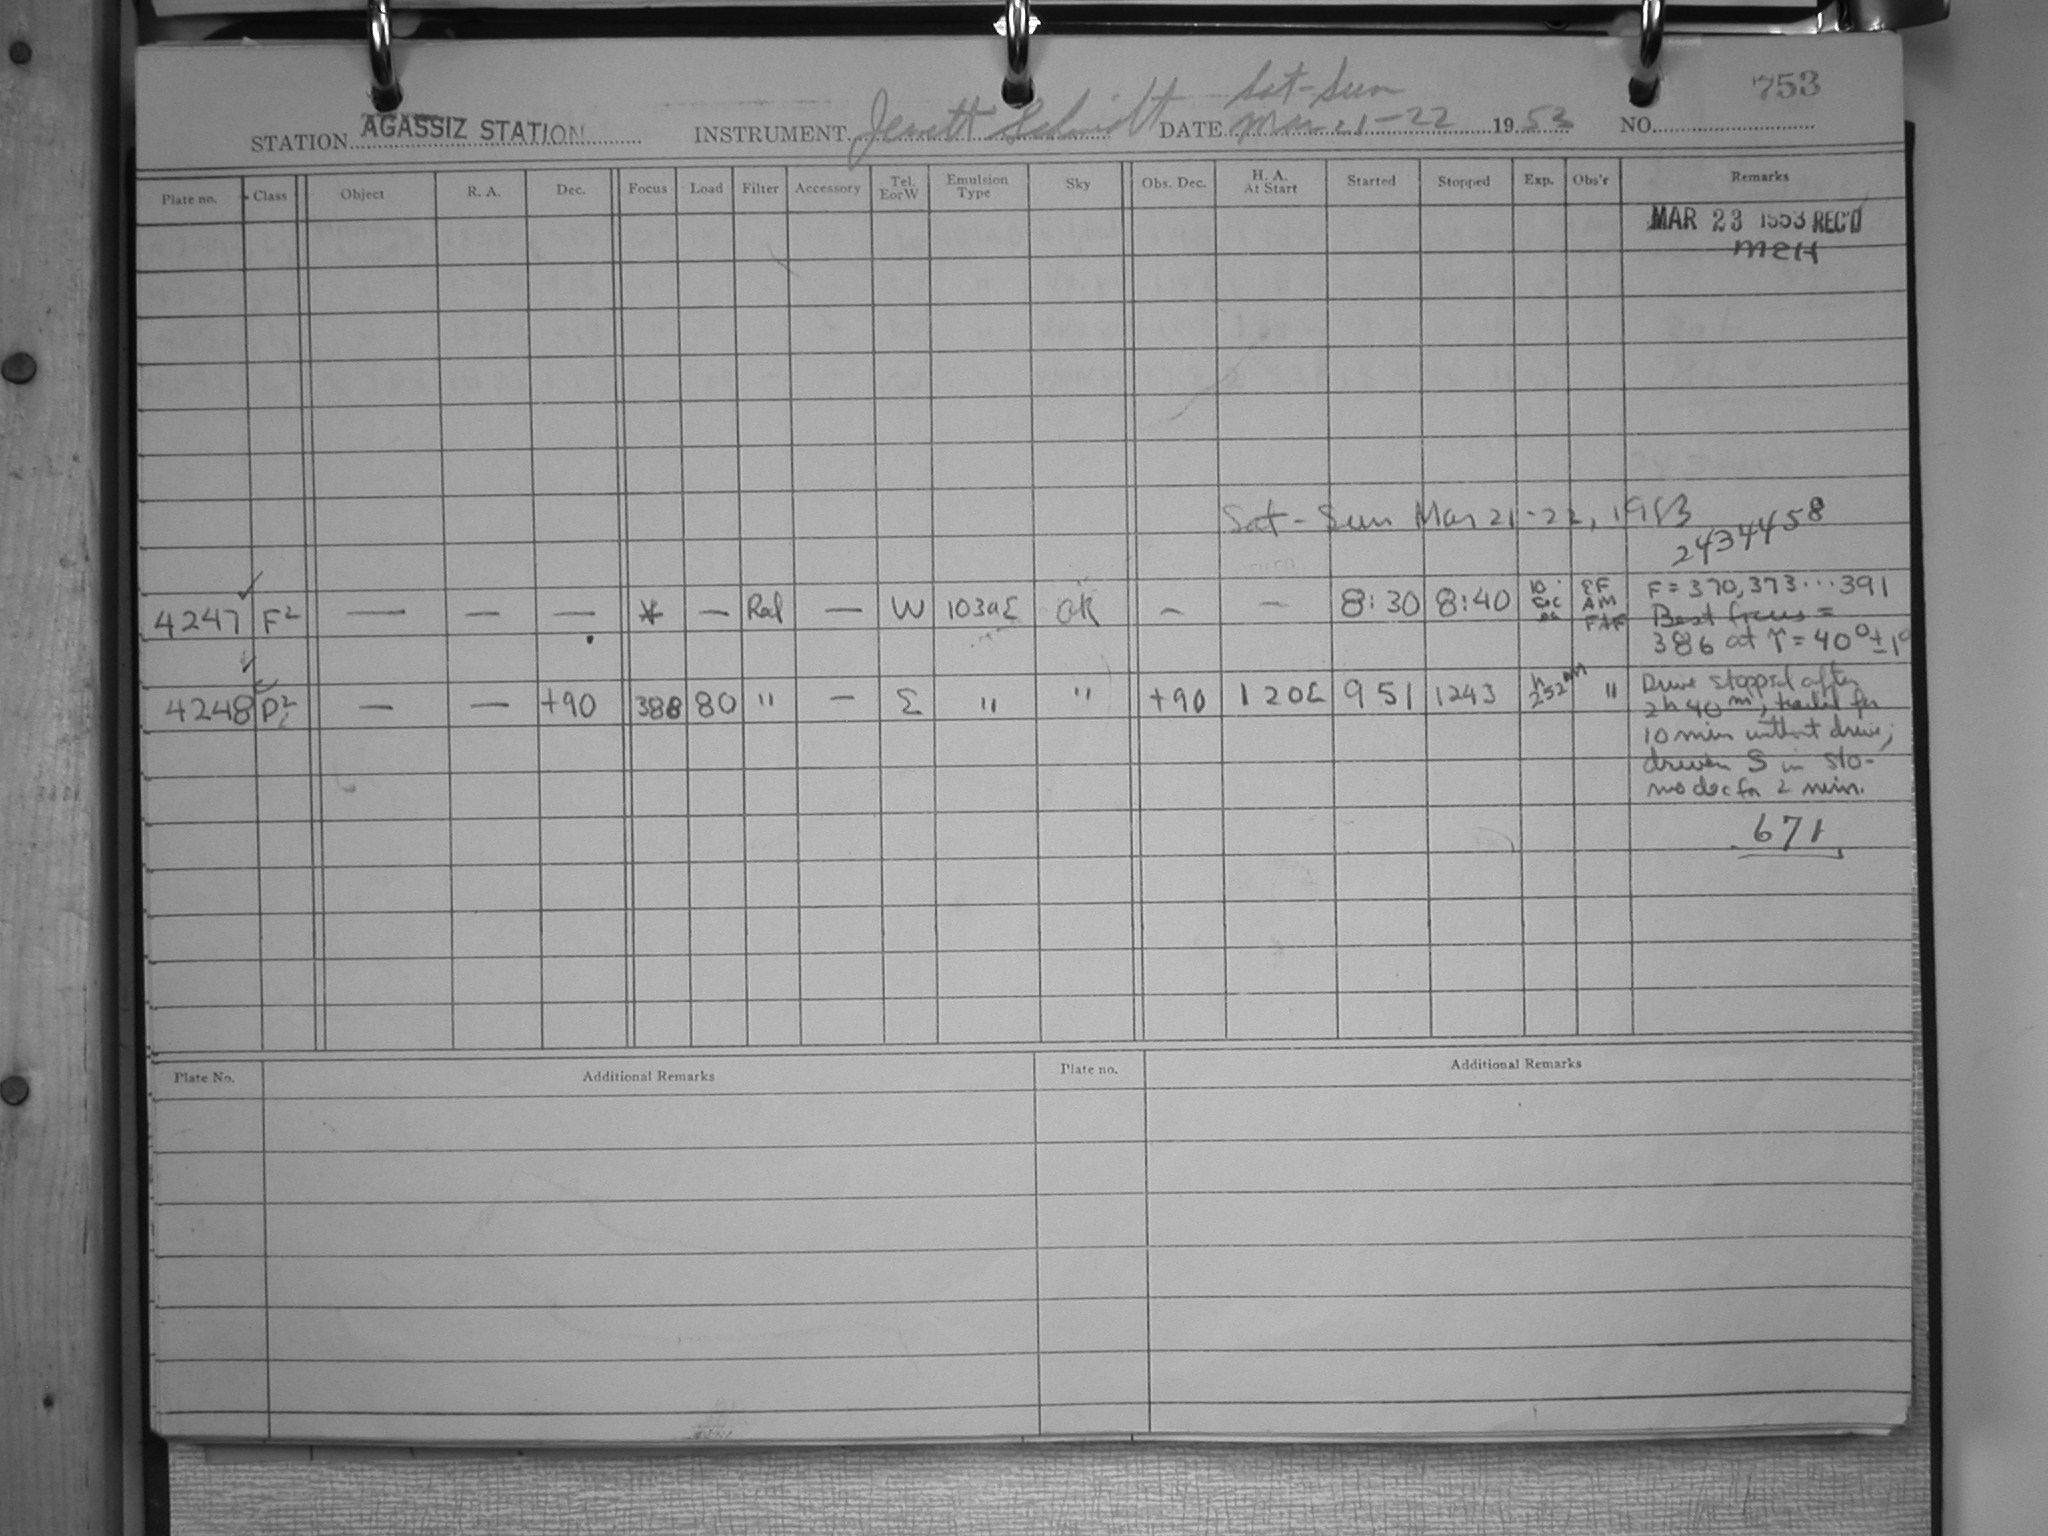 753
Sat-Sun
STATION AGASSIZ STATION INSTRUMENT Jewett Schmidt DATE Mar 21-22 1953 NO.
Plate no. Class Object R. A. Dec. Focus Load Filter Accessory Tel. EorW Emulsion Type Sky Obs. Dec. H. A. At Start Started Stopped Exp. Obs'r Remarks
MAR 23 1953 REC'D
MEH
Sat-Sun Mar 21-22, 1953
2434458
4247 F2 — — — * — Red — W 103aE OK — — 8:30 8:40 10 sec ea EF AM F = 370, 373 ... 391
Best focus =
386 at T = 40°±1°
4248 P2 — — +90 388 80 " — E " " +90 1 20E 9 51 1243 2h52m " Drive stopped after
2h 40m, trailed for
10 min without drive;
driven S in slo-
mo dec for 2 min.
671
Plate No. Additional Remarks Plate no. Additional Remarks